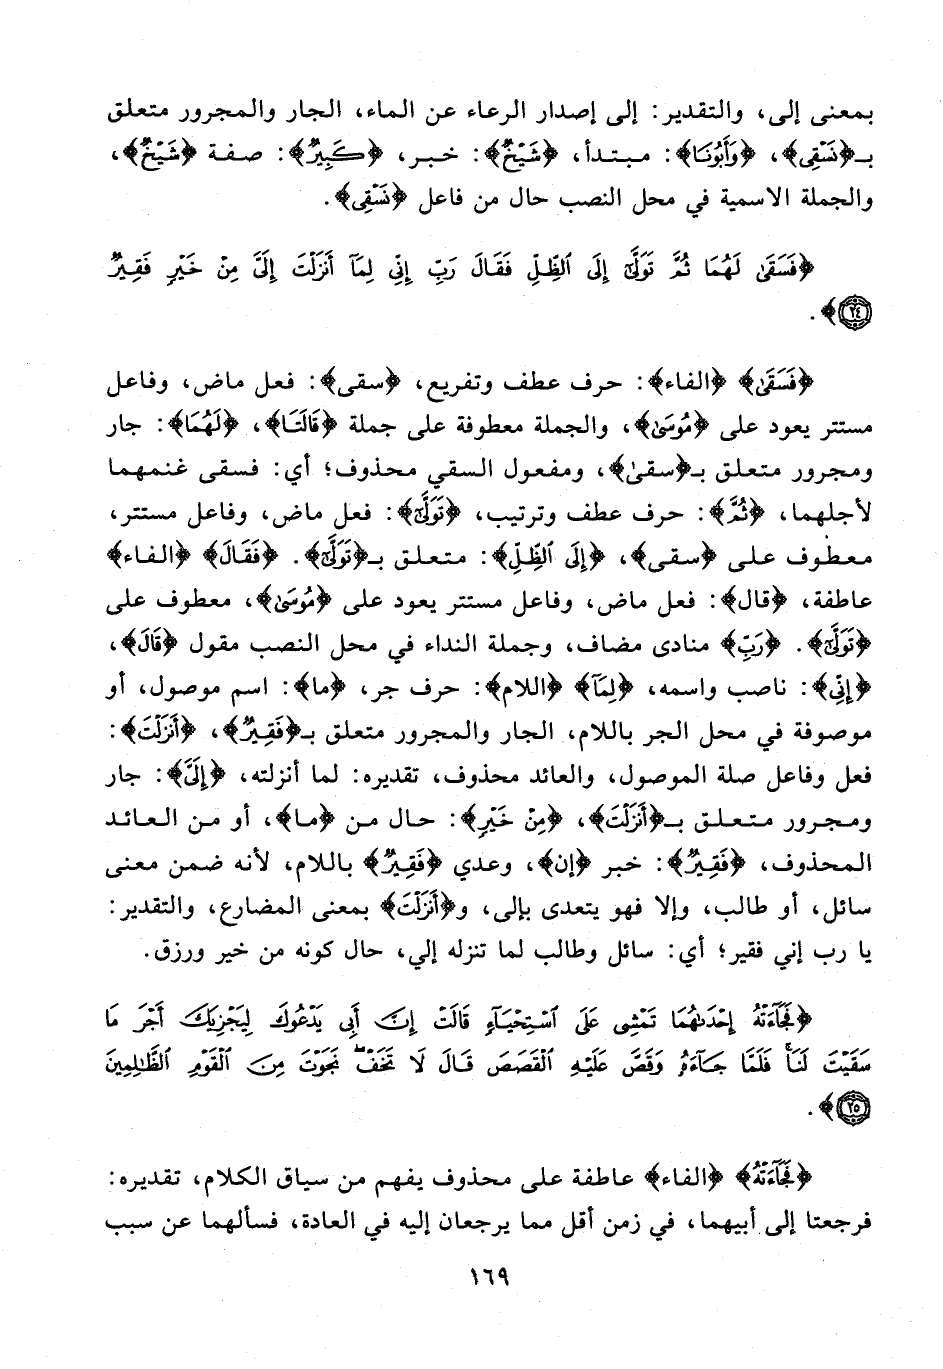 بمعنى إلى، والتقدير: إلى إصدار الرعاء عن الماء، الجار والمجرور متعلق
بـ﴿نَسْقِى﴾، ﴿وَأَبُونَا﴾: مبتدأ، ﴿شَيْخٌ﴾: خبر، ﴿كَبِيرٌ﴾: صفة ﴿شَيْخٌ﴾،
والجملة الاسمية في محل النصب حال من فاعل ﴿نَسْقِى﴾.
﴿فَسَقَىٰ لَهُمَا ثُمَّ تَوَلَّىٰٓ إِلَى ٱلظِّلِّ فَقَالَ رَبِّ إِنِّى لِمَآ أَنزَلْتَ إِلَىَّ مِنْ خَيْرٍ فَقِيرٌ
٢٤﴾.
﴿فَسَقَىٰ﴾ ﴿الفاء﴾: حرف عطف وتفريع، ﴿سقى﴾: فعل ماض، وفاعل
مستتر يعود على ﴿مُوسَىٰ﴾، والجملة معطوفة على جملة ﴿قَالَتَا﴾، ﴿لَهُمَا﴾: جار
ومجرور متعلق بـ﴿سقىٰ﴾، ومفعول السقي محذوف؛ أي: فسقى غنمهما
لأجلهما، ﴿ثُمَّ﴾: حرف عطف وترتيب، ﴿تَوَلَّىٰٓ﴾: فعل ماض، وفاعل مستتر،
معطوف على ﴿سقى﴾، ﴿إِلَى ٱلظِّلِّ﴾: متعلق بـ﴿تَوَلَّىٰٓ﴾. ﴿فَقَالَ﴾ ﴿الفاء﴾
عاطفة، ﴿قال﴾: فعل ماض، وفاعل مستتر يعود على ﴿مُوسَىٰ﴾، معطوف على
﴿تَوَلَّىٰٓ﴾. ﴿رَبِّ﴾ منادى مضاف، وجملة النداء في محل النصب مقول ﴿قَالَ﴾،
﴿إِنِّى﴾: ناصب واسمه، ﴿لِمَآ﴾ ﴿اللام﴾: حرف جر، ﴿ما﴾: اسم موصول، أو
موصوفة في محل الجر باللام، الجار والمجرور متعلق بـ﴿فَقِيرٌ﴾، ﴿أَنزَلْتَ﴾:
فعل وفاعل صلة الموصول، والعائد محذوف، تقديره: لما أنزلته، ﴿إِلَىَّ﴾: جار
ومجرور متعلق بـ﴿أَنزَلْتَ﴾، ﴿مِنْ خَيْرٍ﴾: حال من ﴿ما﴾، أو من العائد
المحذوف، ﴿فَقِيرٌ﴾: خبر ﴿إن﴾، وعدي ﴿فَقِيرٌ﴾ باللام، لأنه ضمن معنى
سائل، أو طالب، وإلا فهو يتعدى بإلى، و﴿أَنزَلْتَ﴾ بمعنى المضارع، والتقدير:
يا رب إني فقير؛ أي: سائل وطالب لما تنزله إلي، حال كونه من خير ورزق.
﴿فَجَآءَتْهُ إِحْدَىٰهُمَا تَمْشِى عَلَى ٱسْتِحْيَآءٍ قَالَتْ إِنَّ أَبِى يَدْعُوكَ لِيَجْزِيَكَ أَجْرَ مَا
سَقَيْتَ لَنَا ۚ فَلَمَّا جَآءَهُۥ وَقَصَّ عَلَيْهِ ٱلْقَصَصَ قَالَ لَا تَخَفْ ۖ نَجَوْتَ مِنَ ٱلْقَوْمِ ٱلظَّٰلِمِينَ
٢٥﴾.
﴿فَجَآءَتْهُ﴾ ﴿الفاء﴾ عاطفة على محذوف يفهم من سياق الكلام، تقديره:
فرجعتا إلى أبيهما، في زمن أقل مما يرجعان إليه في العادة، فسألهما عن سبب
١٦٩